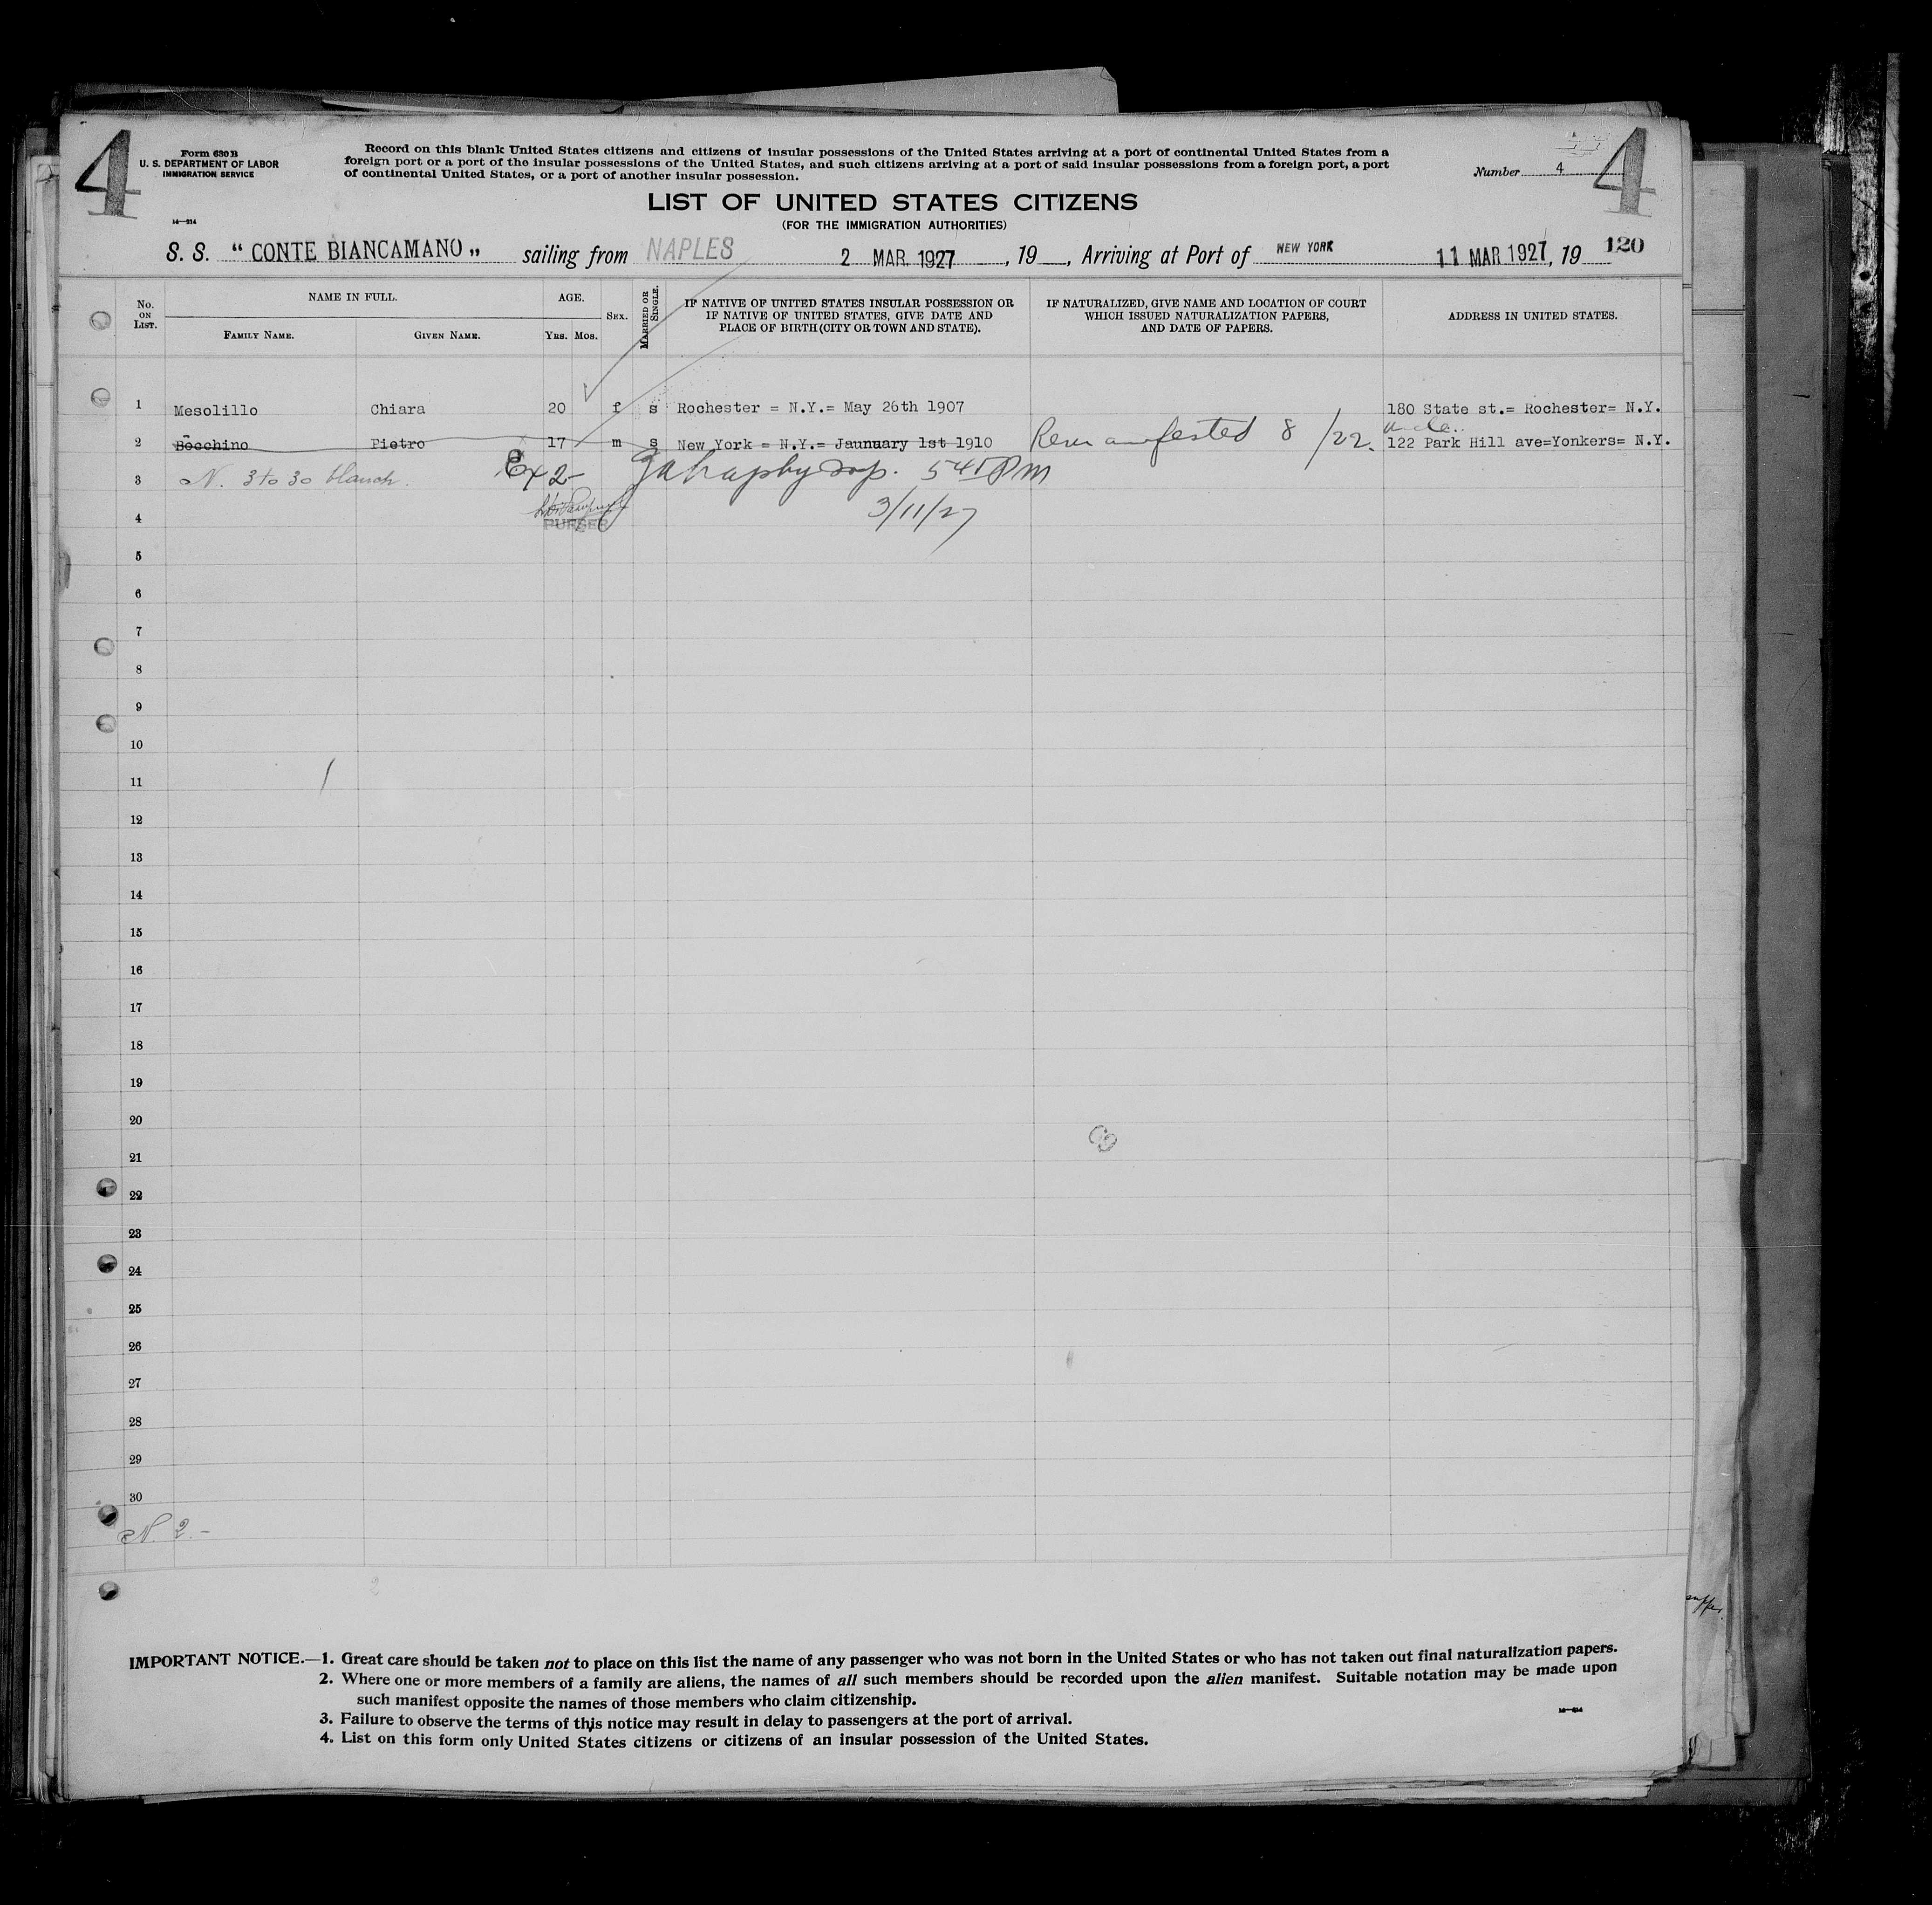 4
Form 630 B
U. S. DEPARTMENT OF LABOR
IMMIGRATION SERVICE
14—214
Record on this blank United States citizens and citizens of insular possessions of the United States arriving at a port of continental United States from a
foreign port or a port of the insular possessions of the United States, and such citizens arriving at a port of said insular possessions from a foreign port, a port
of continental United States, or a port of another insular possession.
Number 4
4
LIST OF UNITED STATES CITIZENS
(FOR THE IMMIGRATION AUTHORITIES)
S. S. "CONTE BIANCAMANO" sailing from NAPLES 2 MAR. 1927, 19__, Arriving at Port of NEW YORK 11 MAR 1927, 19 120
No. ON LIST.
NAME IN FULL.
FAMILY NAME. GIVEN NAME.
AGE.
YRS. MOS.
SEX.
MARRIED OR SINGLE.
IF NATIVE OF UNITED STATES INSULAR POSSESSION OR
IF NATIVE OF UNITED STATES, GIVE DATE AND
PLACE OF BIRTH (CITY OR TOWN AND STATE).
IF NATURALIZED, GIVE NAME AND LOCATION OF COURT
WHICH ISSUED NATURALIZATION PAPERS,
AND DATE OF PAPERS.
ADDRESS IN UNITED STATES.
1 Mesolillo Chiara 20 f s Rochester = N.Y.= May 26th 1907 180 State st.= Rochester= N.Y.
uncle..
2 Bocchino Pietro 17 m s New York = N.Y.= Jaunuary 1st 1910 Remanifested 8/22. 122 Park Hill ave=Yonkers= N.Y.
3 N. 3 to 30 blanch. Ex 2- 545 PM
4 PURSER 3/11/27
5
6
7
8
9
10
11
12
13
14
15
16
17
18
19
20
21
22
23
24
25
26
27
28
29
30
N. 2.-
2
IMPORTANT NOTICE.—1. Great care should be taken not to place on this list the name of any passenger who was not born in the United States or who has not taken out final naturalization papers.
2. Where one or more members of a family are aliens, the names of all such members should be recorded upon the alien manifest. Suitable notation may be made upon
such manifest opposite the names of those members who claim citizenship.
3. Failure to observe the terms of this notice may result in delay to passengers at the port of arrival.
4. List on this form only United States citizens or citizens of an insular possession of the United States.